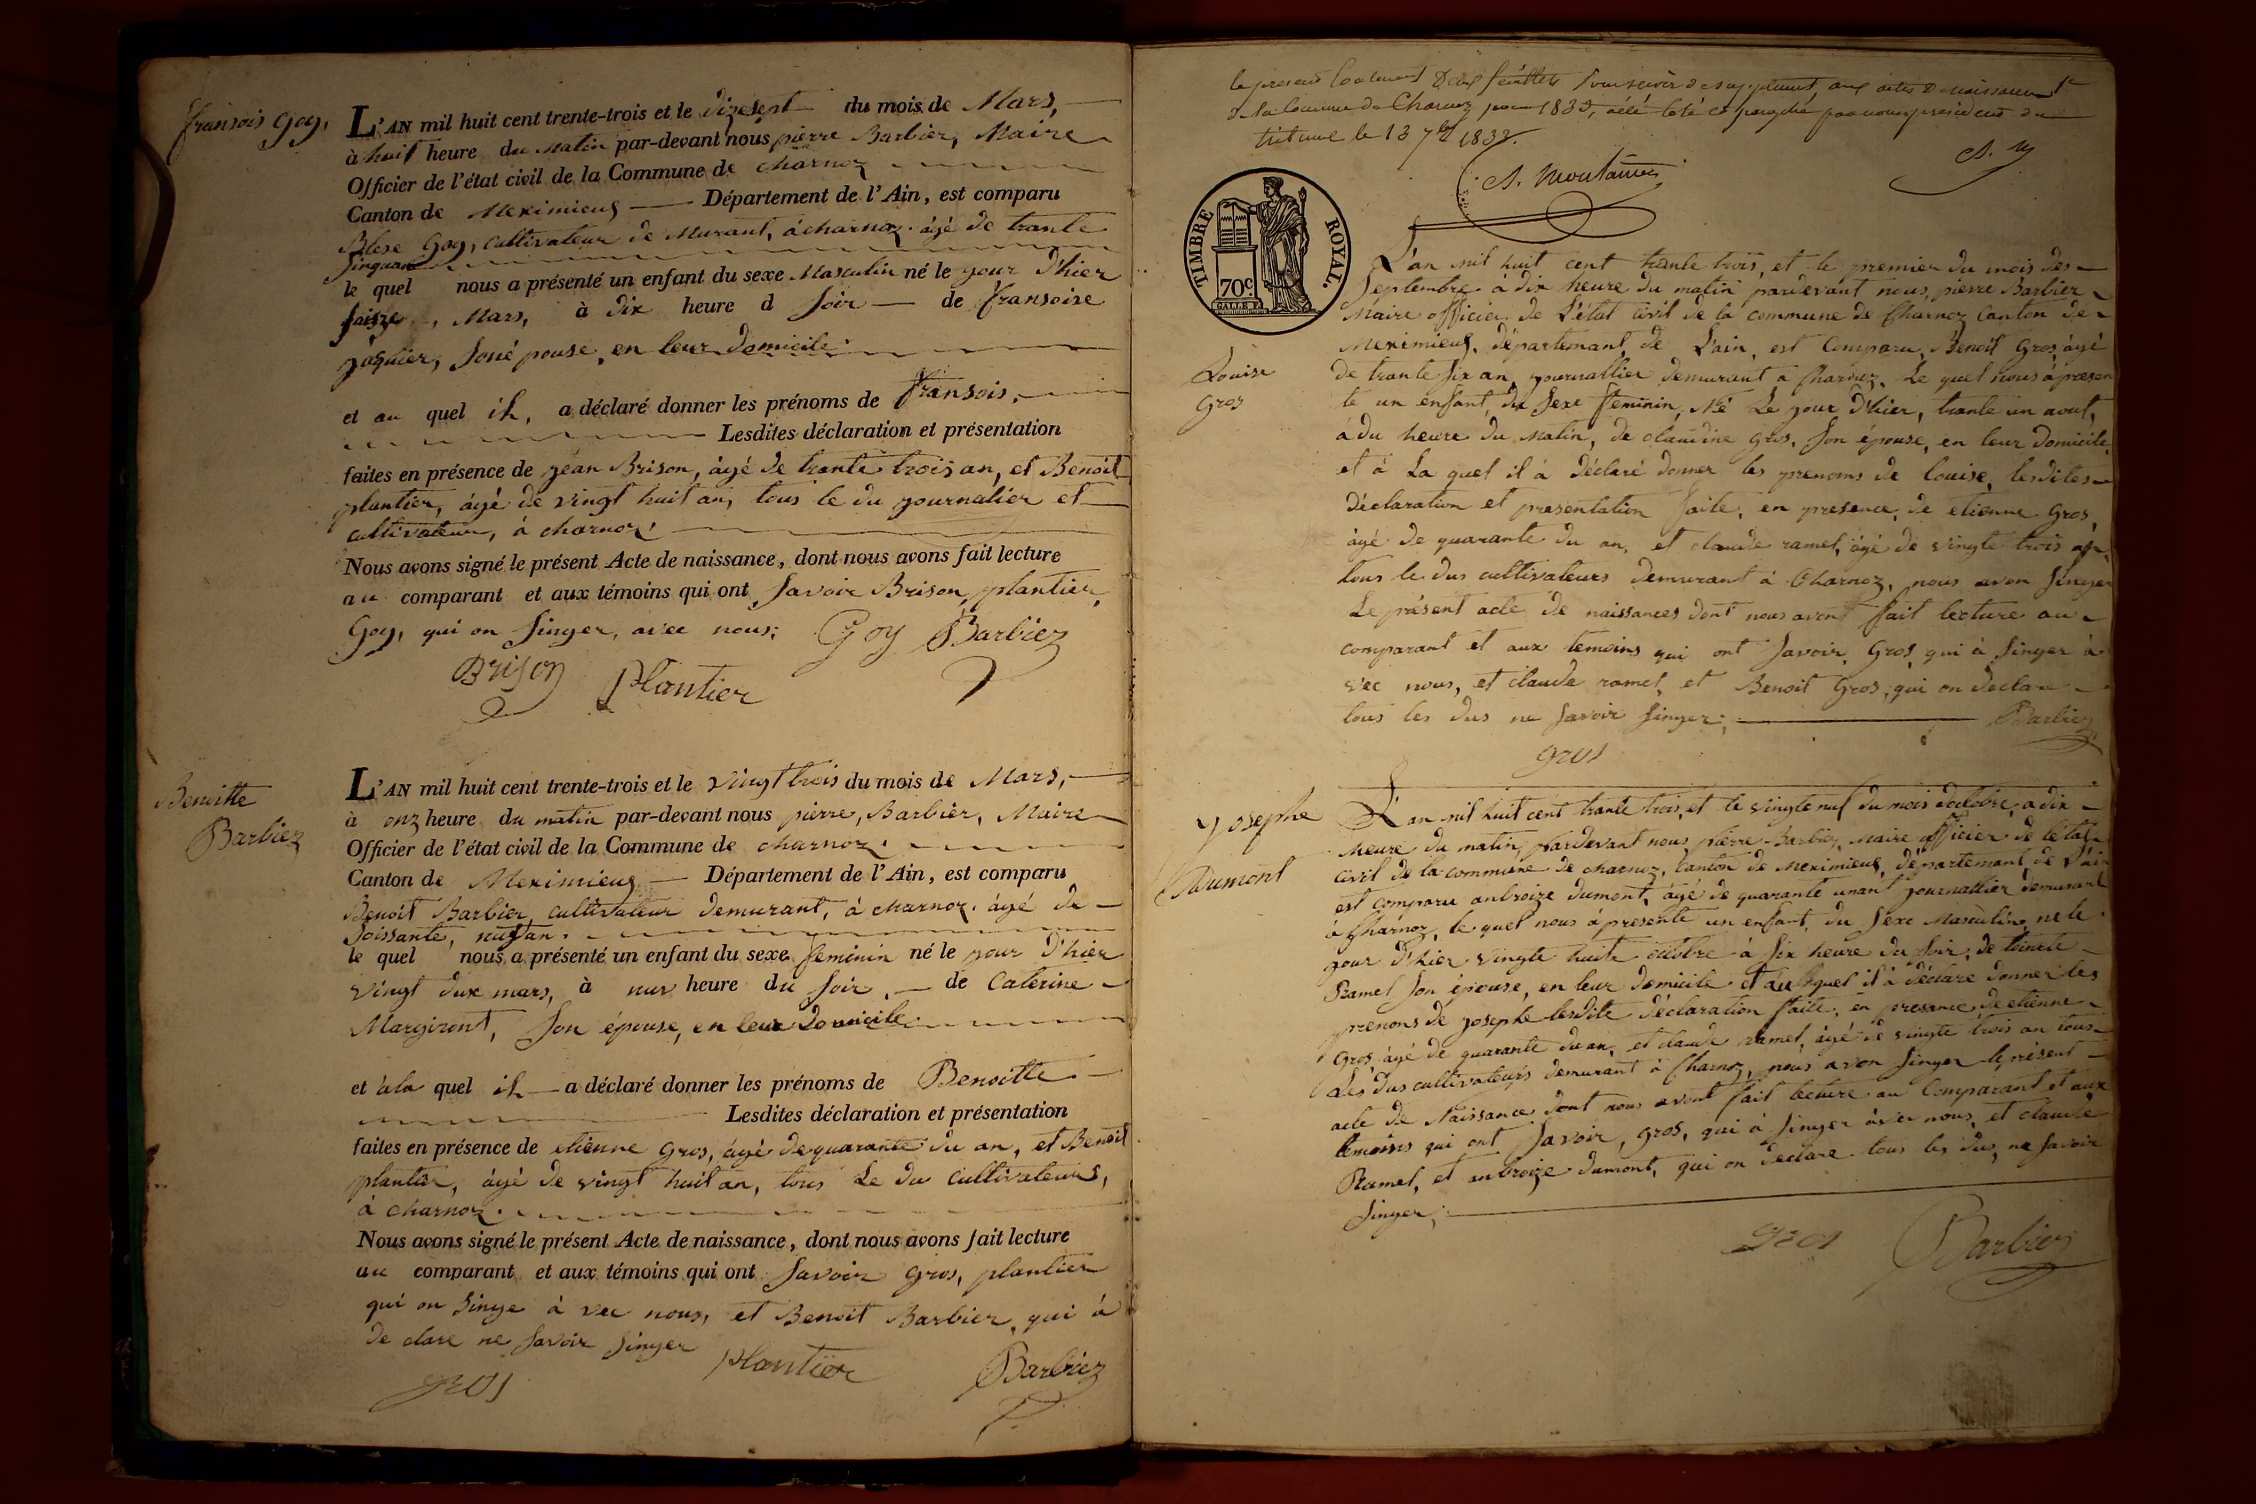 fransois Goy,
L'AN mil huit cent trente-trois et le dizesept du mois de Mars,
à huit heure du matin par-devant nous pierre Barbier, Maire
Officier de l'état civil de la Commune de charnoz
Canton de Meximieus Département de l'Ain, est comparu
Blese Goy, cultivateur de Murant, à charnoz. âgé de trante
sinquan
le quel nous a présenté un enfant du sexe Masculin né le your d'hier
saize, Mars, à dix heure d soir de fransoise
joquier, son épouse, en leur domicile.
et au quel il, a déclaré donner les prénoms de fransois,
Lesdites déclaration et présentation
faites en présence de jean Brison, âgé de trante trois an, et Benoit
plantier, âgé de vingt huit an, tous le du journalier et
cultivateur, à charnoz.
Nous avons signé le présent Acte de naissance, dont nous avons fait lecture
au comparant et aux témoins qui ont savoir Brison, plantier,
Goy, qui on singer, avec nous;
Goy Barbier
Brison Plantier
Benoitte
Barbier
L'AN mil huit cent trente-trois et le vingt trois du mois de Mars,
à onz heure du matin par-devant nous pierre, Barbier, Maire
Officier de l'état civil de la Commune de charnoz.
Canton de Meximieus Département de l'Ain, est comparu
Benoit Barbier, cultivateur demurant, à charnoz. âgé de
soissante, neuf an.
le quel nous a présenté un enfant du sexe feminin né le jour d'hier
vingt dux mars, à nuv heure du soir, de Caterine
Margiront, son épouse, en leur domicile.
et à la quel il a déclaré donner les prénoms de Benoitte
Lesdites déclaration et présentation
faites en présence de etienne gros, âgé de quarante du an, et Benoit
plantier, âgé de vingt huit an, tous Le du cultivateurs,
à charnoz.
Nous avons signé le présent Acte de naissance, dont nous avons fait lecture
au comparant et aux témoins qui ont savoir gros, plantier
qui on singe à vec nous, et Benoit Barbier, qui à
de clare ne savoir singer
gros Plantier Barbier
le présent deux feuillets pour servir de supplément, aux actes de naissance
de la Commune de Charnoz pour 1833, a été coté et paraphé par nous président du
tribunal le 13 7bre 1833.
TIMBRE ROYAL.
70c
L'an mil huit cent trante trois, et le premier du mois des
septembre à dix heure du matin pardevant nous, pierre Barbier
Maire officier de L'état civil de la commune de Charnoz Canton de
Meximieus, département de L'ain, est comparu, Benoit Gros, âgé
Louise
Gros
de trante six an, journallier demurant à Charnoz. Le quel nous à presen
te un enfant, du sexe feminin, Né Le jour d'hier, trante un aout,
à du heure du Matin, de claudine gros, son épouse, en leur domicile,
et à La quel il à déclaré donner les prenoms de Louise, lesdites
déclaration et presentation faite, en presence, de etienne Gros,
âgé de quarante du an, et claude ramel, âgé de vingte trois an,
tous le dus cultivateurs demurant à Charnoz, nous avon singer
Le présent acte de naissances dont nous avont fait lecture au
comparant et aux temoins qui ont savoir, Gros, qui à singer à
vec nous, et claude ramel, et Benoit Gros, qui on declare
tous les dus ne savoir singer; Barbier
gros
Yosephe
Dumont
L'an mil huit cent trante trois, et le vingte neuf du mois doctobre, à dix
heure du matin, pardevant nous pierre Barbier, Maire officier de l'état
civil de la commune de charnoz, canton de Meximieus, département de L'ain
est comparu anbroize dumont, âgé de quarante unant journallier demurant
à Charnoz, le quel nous à presente un enfant, du sexe Masculin, né le
jour d'hier vingte huite octobre à six heure du soir, de
Ramel son épouse, en leur domicile et au quel il à déclare donner les
prenons de yosephe lesdite déclaration faite, en presance, de etienne
Gros, âgé de quarante du an, et claude ramel, âgé de vingte trois an tous
Les dus cultivateurs demurant à Charnoz, nous avon singer le présent
acte de Naissance dont nous avont fait lecture au Comparant et aux
temoins qui ont savoir, gros, qui à singer àvec nous, et claude
Ramel, et anbroize dumont, qui on declare tous les dus, ne savoir
singer;
gros Barbier